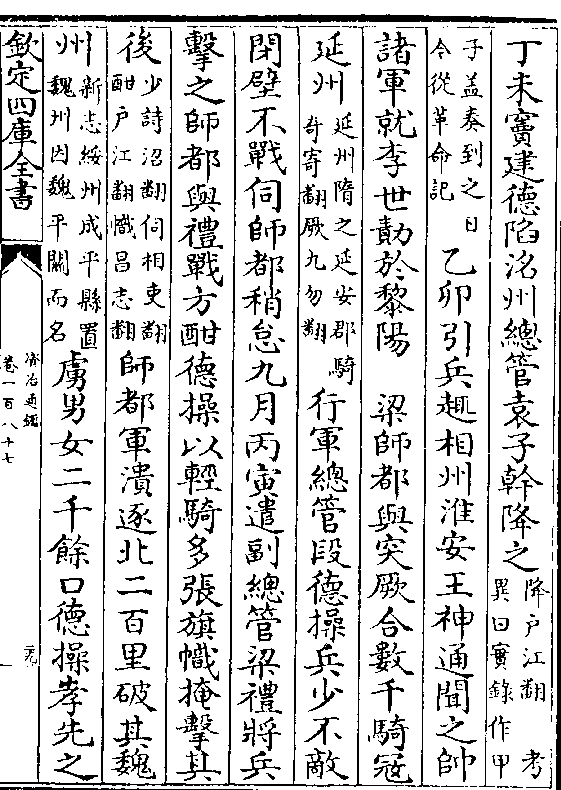 丁未竇建德陷洺州總管袁子幹降之降戶江翻 考異曰實錄作甲
子蓋奏到之日今從革命記乙卯引兵趣相州淮安王神通聞之帥
諸軍就李世勣於黎陽 梁師都與突厥合數千騎寇
延州延州隋之延安郡騎奇寄翻厥九勿翻行軍總管段德操兵少不敵
閉壁不戰伺師都稍怠九月丙寅遣副總管梁禮將兵
擊之師都與禮戰方酣德操以輕騎多張旗幟掩擊其
後少詩沼翻伺相吏翻酣戶江翻幟昌志翻師都軍潰逐北二百里破其魏
州新志綏州成平縣置魏州因魏平關而名虜男女二千餘口德操孝先之
欽定四庫全書
資治通鑑
卷一百八十七